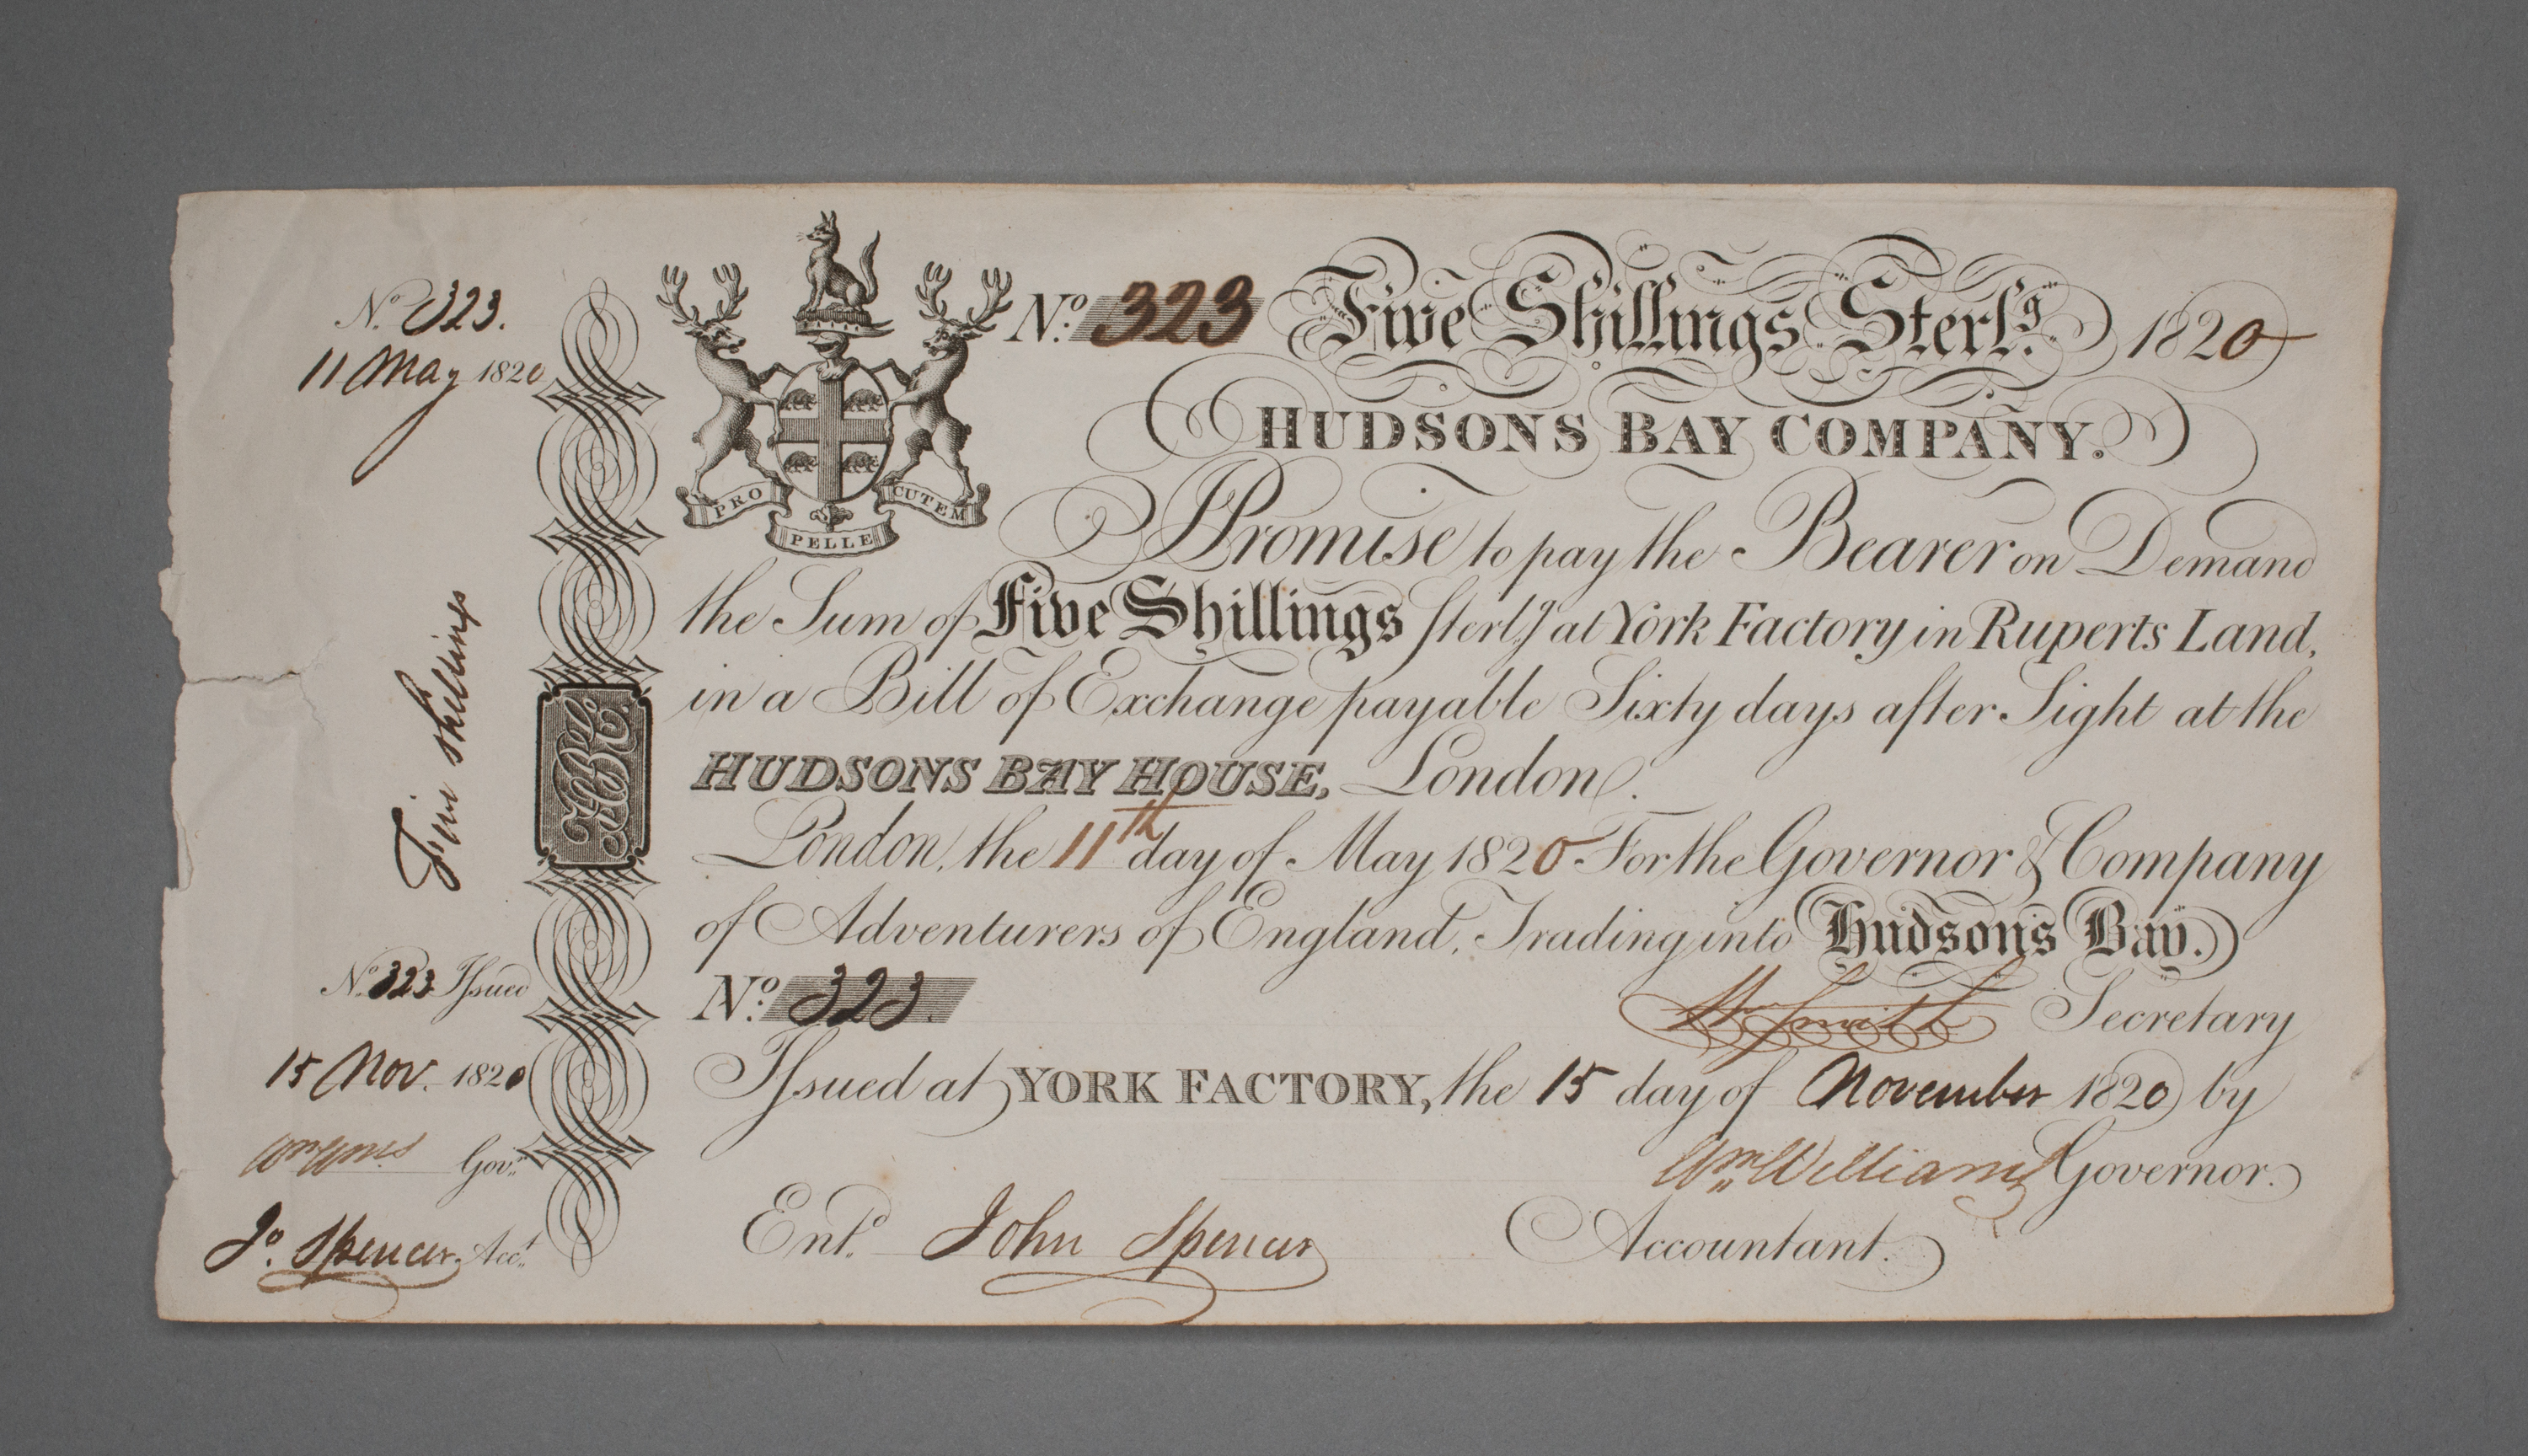 No. 323.
11 May 1820
Five shillings
No. 323 Issued
15 Nov. 1820
Wm Wms Govr.
Jo. Spencer Acct.
PRO PELLE CUTEM
No. 323 Five Shillings Sterlg. 1820
HUDSONS BAY COMPANY.
Promise to pay the Bearer on Demand
the Sum of Five Shillings Sterlg. at York Factory in Ruperts Land,
in a Bill of Exchange payable Sixty days after Sight at the
HUDSONS BAY HOUSE, London.
London, the 11th day of May 1820 For the Governor & Company
of Adventurers of England, Trading into Hudson's Bay.
No. 323. Wm Smith Secretary
Issued at YORK FACTORY, the 15 day of November 1820 by
Wm. Williams Governor.
Entd. John Spencer Accountant.